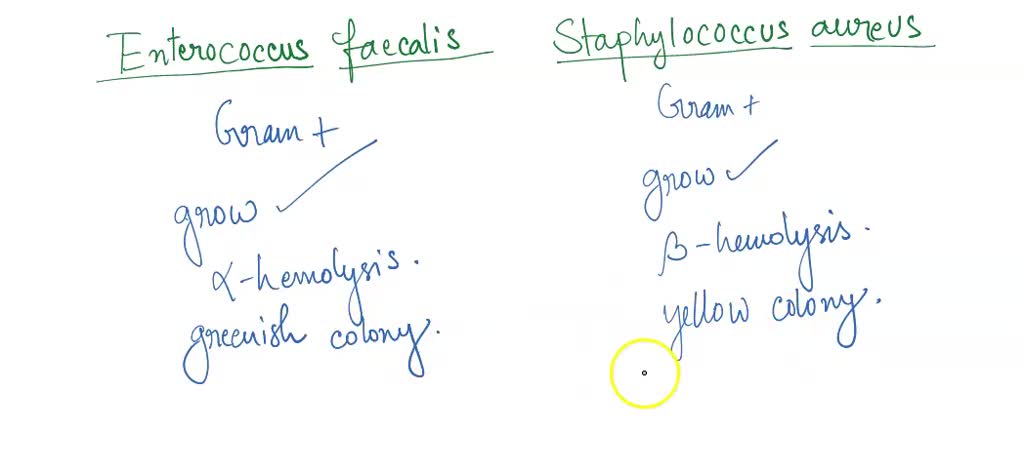 Enterococcus faecalis
Gram +
grow ✓
α-hemolysis.
greenish colony.
Staphylococcus aureus
Gram +
grow ✓
β-hemolysis.
yellow colony.